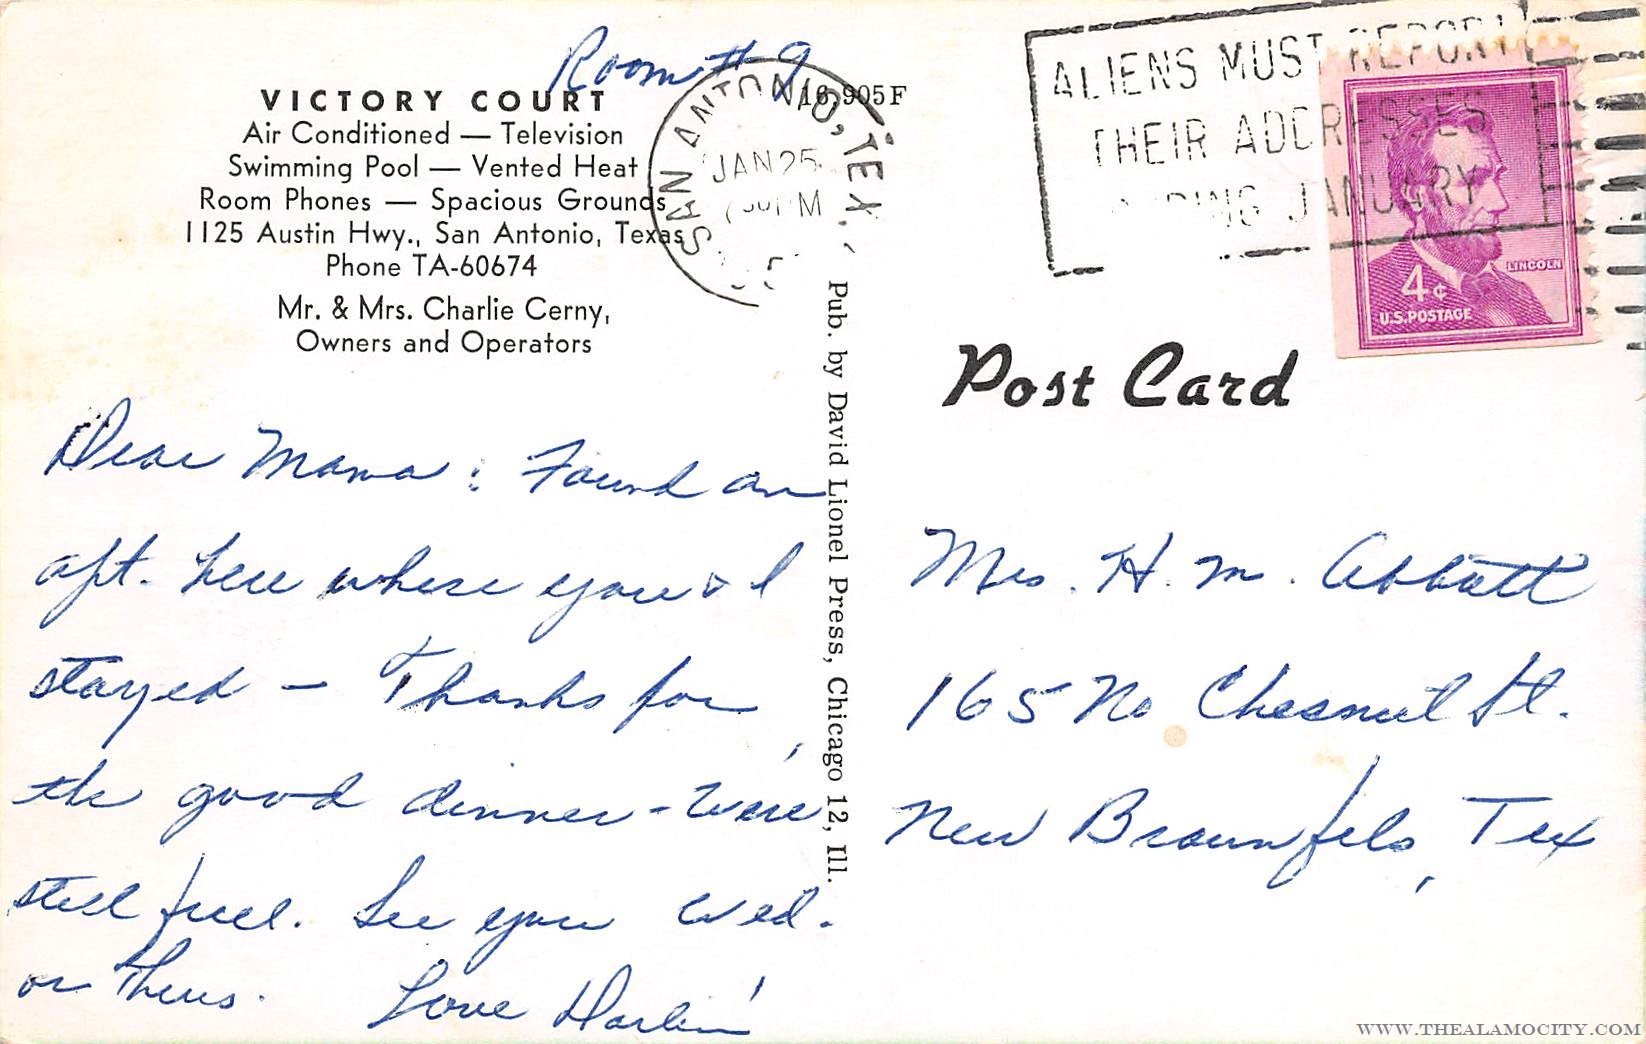 Room # 9
VICTORY COURT
16,905F
Air Conditioned — Television
Swimming Pool — Vented Heat
Room Phones — Spacious Grounds
1125 Austin Hwy., San Antonio, Texas
Phone TA-60674
Mr. & Mrs. Charlie Cerny,
Owners and Operators
SAN ANTONIO, TEX.
JAN 25
PM
ALIENS MUST REPORT
THEIR ADDRESSES
DURING JANUARY
LINCOLN
4¢
U.S. POSTAGE
Post Card
Pub. by David Lionel Press, Chicago 12, Ill.
Dear Mama: Found an
apt. here where you & I
stayed — Thanks for
the good dinner - were
still full. See you Wed.
or Thurs. Love Harlin
Mrs. H. M. Abbott
165 No Chesnut St.
New Braunfels, Tex
WWW.THEALAMOCITY.COM